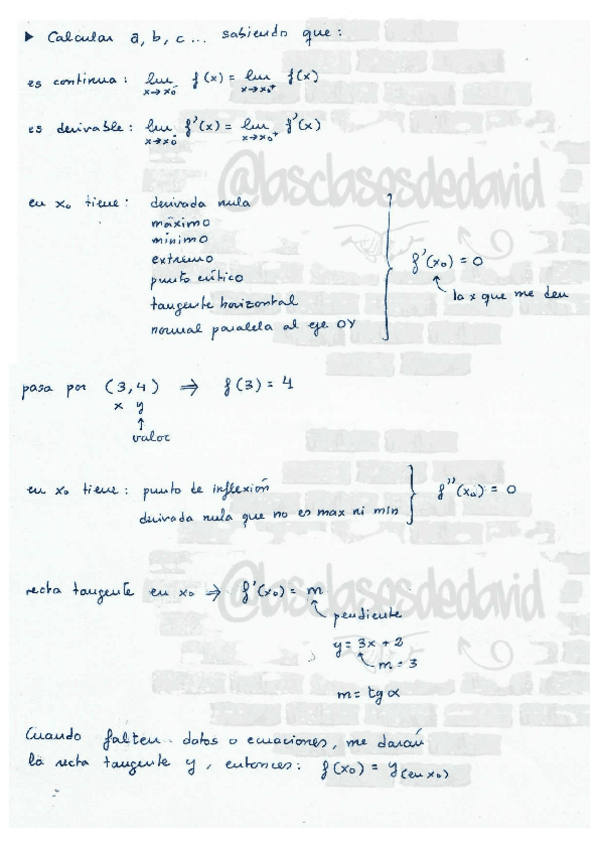 ▶ Calcular a, b, c ... sabiendo que:
es continua: lim x→x₀⁻ f(x) = lim x→x₀⁺ f(x)
es derivable: lim x→x₀⁻ f'(x) = lim x→x₀⁺ f'(x)
@lasclasesdedavid
en x₀ tiene: derivada nula
máximo
mínimo
extremo
punto crítico
tangente horizontal
normal paralela al eje OY
f'(x₀) = 0
la x que me den
pasa por (3,4) ⇒ f(3) = 4
x y
↑
valor
en x₀ tiene: punto de inflexión
derivada nula que no es max ni min
f''(x₀) = 0
@lasclasesdedavid
recta tangente en x₀ ⇒ f'(x₀) = m
pendiente
y = 3x + 2
m = 3
m = tg α
Cuando falten datos o ecuaciones, me darán
la recta tangente y, entonces: f(x₀) = y(en x₀)